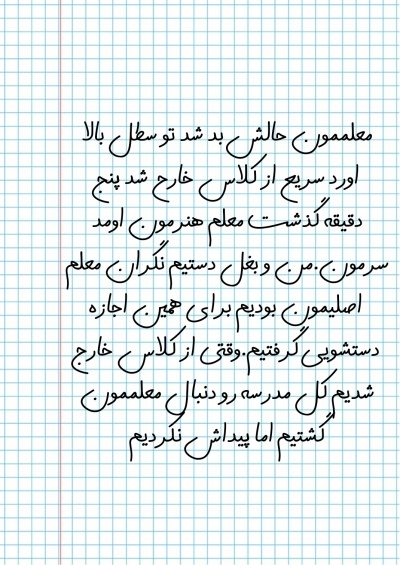 معلممون حالش بد شد تو سطل بالا
اورد سریع از کلاس خارج شد پنج
دقیقه گذشت معلم هنرمون اومد
سرمون.من و بغل دستیم نگران معلم
اصلیمون بودیم برای همین اجازه
دستشویی گرفتیم.وقتی از کلاس خارج
شدیم کل مدرسه رو دنبال معلممون
گشتیم اما پیداش نکردیم